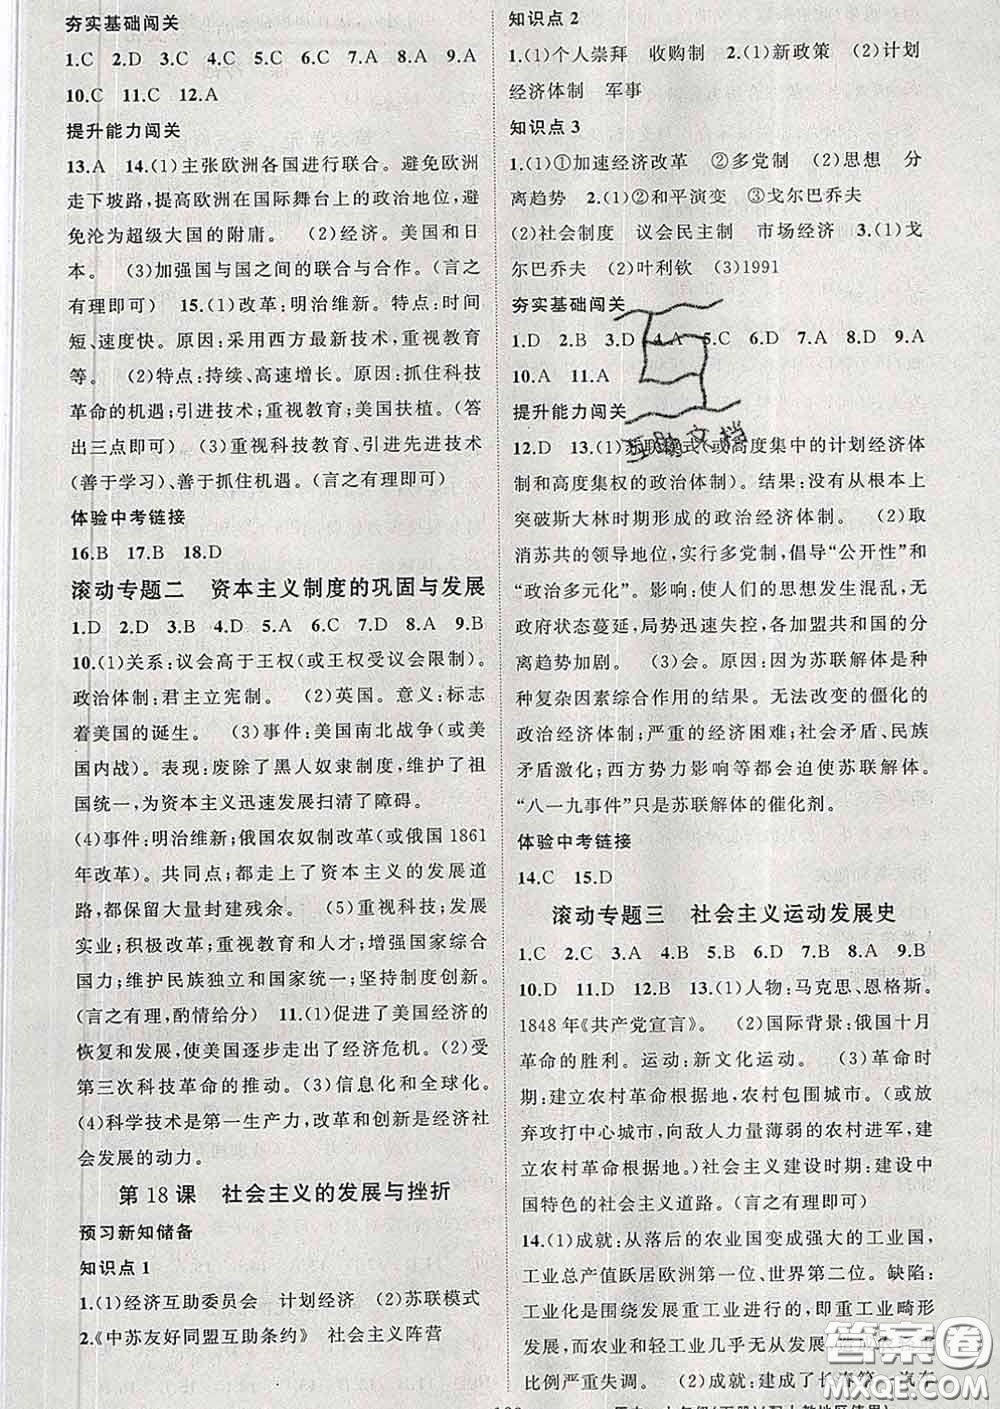 夯实基础闯关
1.C 2.D 3.C 4.C 5.C 6.C 7.A 8.A 9.A
10.C 11.C 12.A
提升能力闯关
13.A 14.(1)主张欧洲各国进行联合。避免欧洲
走下坡路,提高欧洲在国际舞台上的政治地位,避
免沦为超级大国的附庸。 (2)经济。美国和日
本。 (3)加强国与国之间的联合与合作。(言之
有理即可) 15.(1)改革:明治维新。特点:时间
短、速度快。原因:采用西方最新技术,重视教育
等。 (2)特点:持续、高速增长。原因:抓住科技
革命的机遇;引进技术;重视教育;美国扶植。(答
出三点即可) (3)重视科技教育、引进先进技术
(善于学习)、善于抓住机遇。(言之有理即可)
体验中考链接
16.B 17.B 18.D
滚动专题二 资本主义制度的巩固与发展
1.D 2.D 3.B 4.D 5.A 6.C 7.D 8.A 9.B
10.(1)关系:议会高于王权(或王权受议会限制)。
政治体制:君主立宪制。 (2)英国。意义:标志
着美国的诞生。 (3)事件:美国南北战争(或美
国内战)。表现:废除了黑人奴隶制度,维护了祖
国统一,为资本主义迅速发展扫清了障碍。
(4)事件:明治维新;俄国农奴制改革(或俄国 1861
年改革)。共同点:都走上了资本主义的发展道
路,都保留大量封建残余。 (5)重视科技;发展
实业;积极改革;重视教育和人才;增强国家综合
国力;维护民族独立和国家统一;坚持制度创新。
(言之有理,酌情给分) 11.(1)促进了美国经济的
恢复和发展,使美国逐步走出了经济危机。(2)受
第三次科技革命的推动。(3)信息化和全球化。
(4)科学技术是第一生产力,改革和创新是经济社
会发展的动力。
第 18 课 社会主义的发展与挫折
预习新知储备
知识点 1
1.(1)经济互助委员会 计划经济 (2)苏联模式
2.《中苏友好同盟互助条约》 社会主义阵营
知识点 2
1.(1)个人崇拜 收购制 2.(1)新政策 (2)计划
经济体制 军事
知识点 3
1.(1)①加速经济改革 ②多党制 (2)思想 分
离趋势 2.(1)②和平演变 ③戈尔巴乔夫
(2)社会制度 议会民主制 市场经济 3.(1)戈
尔巴乔夫 (2)叶利钦 (3)1991
夯实基础闯关
1.D 2.B 3.D 4.A 5.C 6.C 7.A 8.D 9.A
10.A 11.A
提升能力闯关
12.D 13.(1)苏联模式(或高度集中的计划经济体
制和高度集权的政治体制)。结果:没有从根本上
突破斯大林时期形成的政治经济体制。 (2)取
消苏共的领导地位,实行多党制,倡导“公开性”和
“政治多元化”。影响:使人们的思想发生混乱,无
政府状态蔓延,局势迅速失控,各加盟共和国的分
离趋势加剧。 (3)会。原因:因为苏联解体是种
种复杂因素综合作用的结果。无法改变的僵化的
政治经济体制;严重的经济困难;社会矛盾、民族
矛盾激化;西方势力影响等都会迫使苏联解体。
“八一九事件”只是苏联解体的催化剂。
体验中考链接
14.C 15.D
滚动专题三 社会主义运动发展史
1.C 2.C 3.A 4.B 5.B 6.D 7.B 8.A 9.B
10.D 11.D 12.B 13.(1)人物:马克思、恩格斯。
1848 年《共产党宣言》。 (2)国际背景:俄国十月
革命的胜利。运动:新文化运动。 (3)革命时
期:建立农村革命根据地,农村包围城市。(或放
弃攻打中心城市,向敌人力量薄弱的农村进军,建
立农村革命根据地。)社会主义建设时期:建设中
国特色的社会主义道路。(言之有理即可)
14.(1)成就:从落后的农业国变成强大的工业国,
工业总产值跃居欧洲第一位、世界第二位。缺陷:
工业化是围绕发展重工业进行的,即重工业畸形
发展,而农业和轻工业几乎无从发展
比例严重失调。 (2)成就:建成了长春第一汽车
答案圈
MXQE.COM